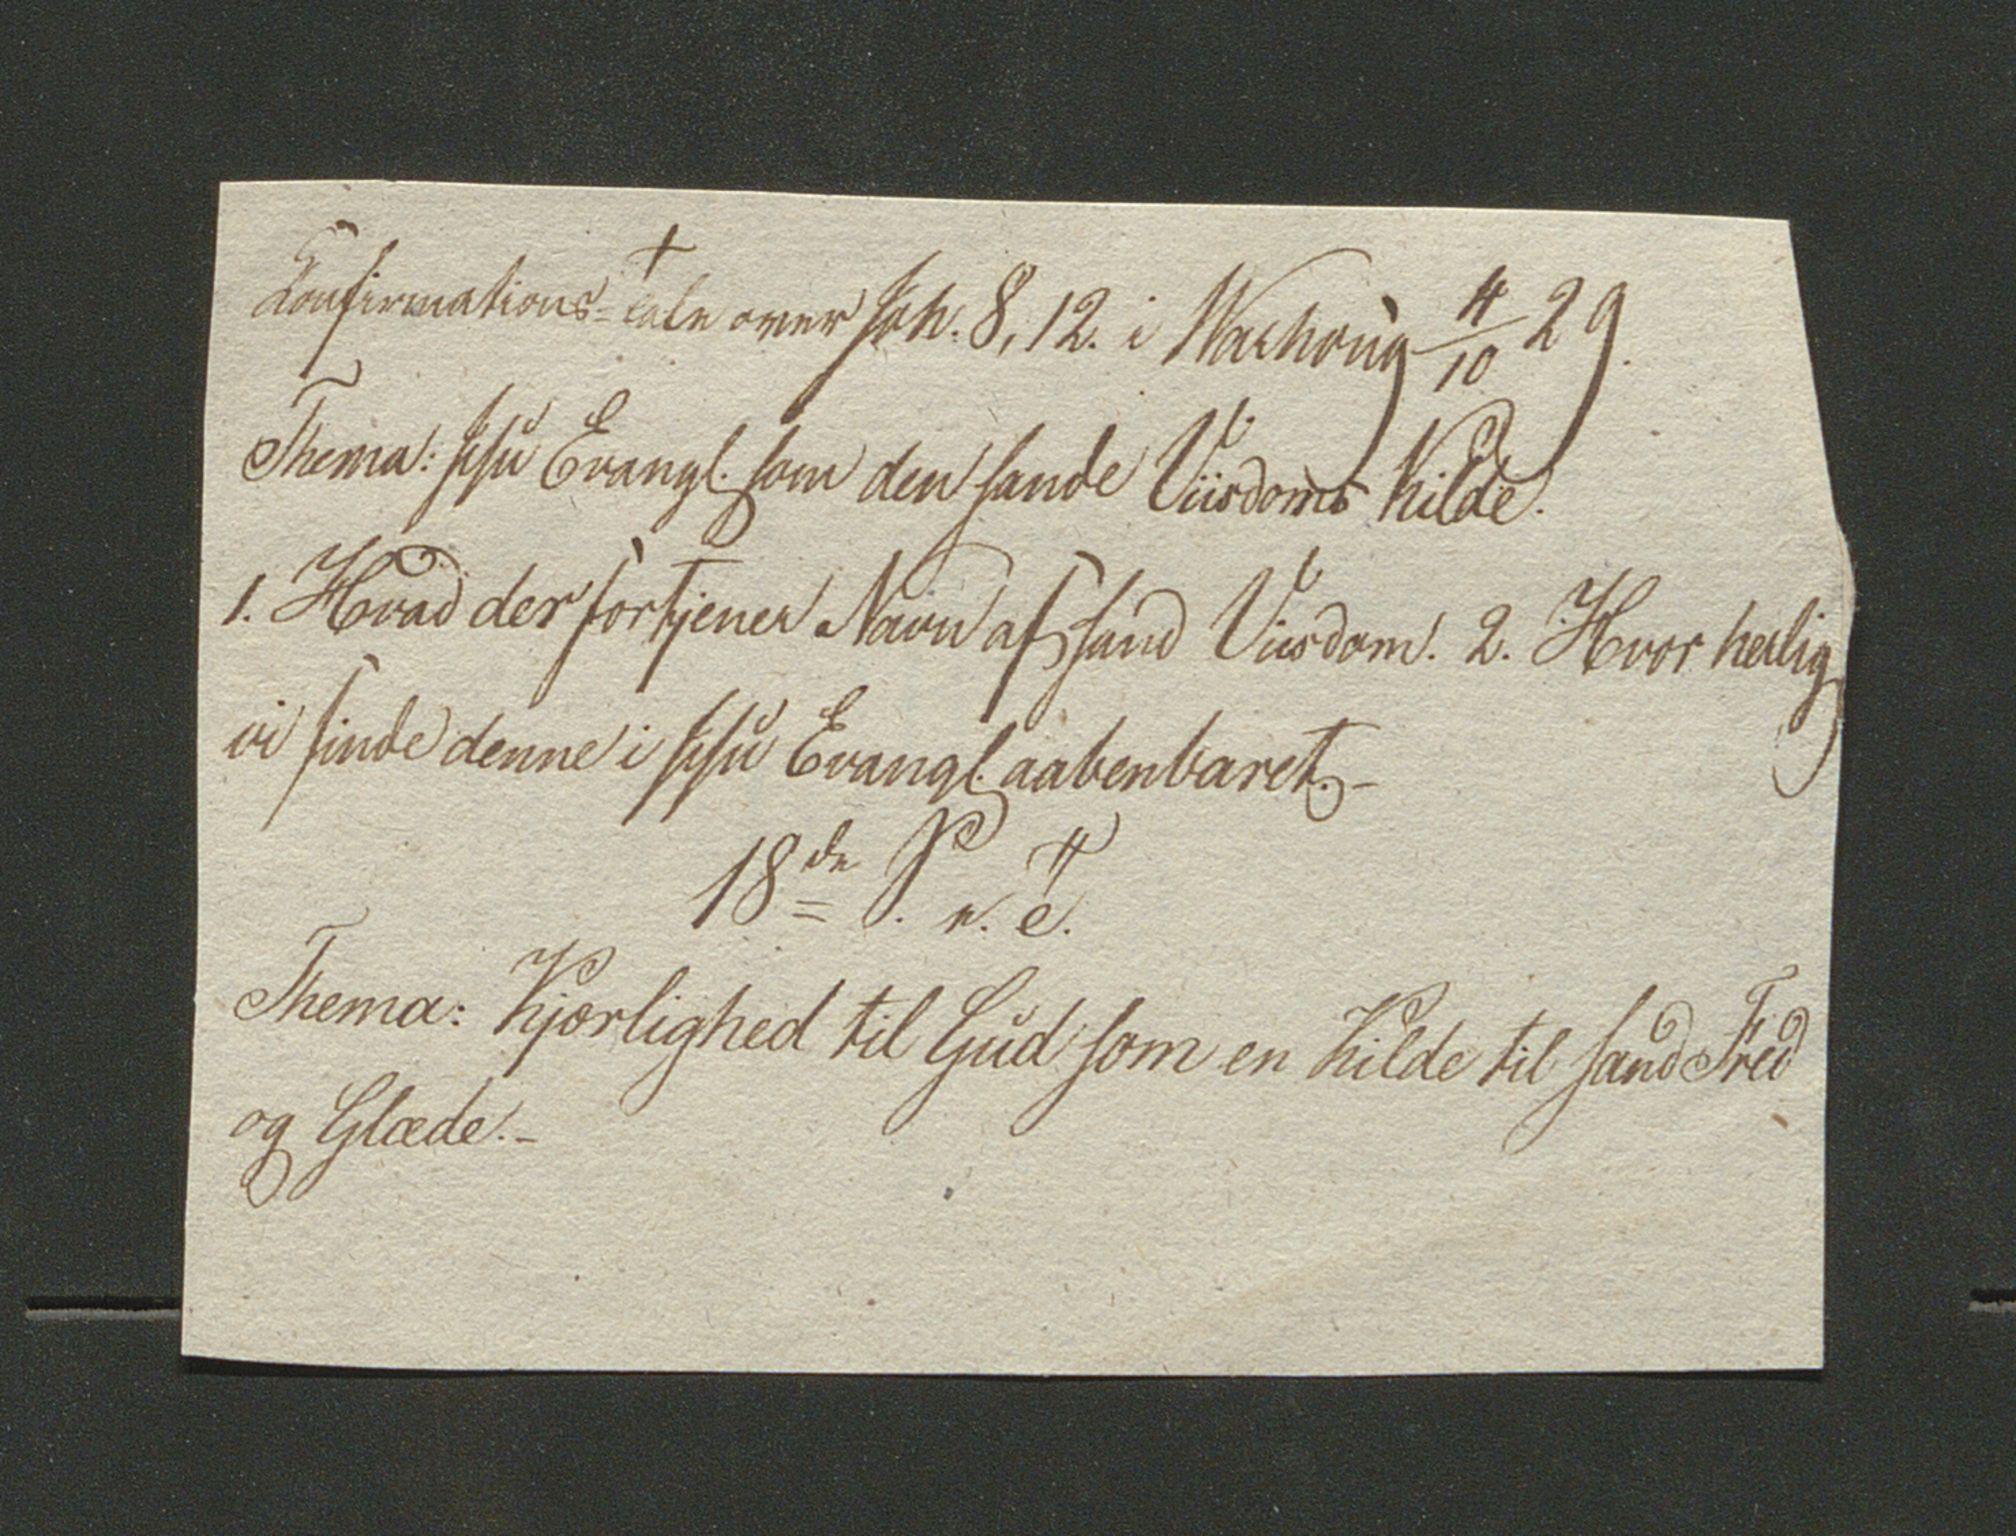 Confirmations-tale over Joh. 8, 12. i Warhoug 4/10 29.
Thema: Jesu Evangl. som den sande Viisdoms Kilde.
1. Hvad der fortjener Navn af sand Viisdom. 2. Hvor herlig
vi finde denne i Jesu Evangl. aabenbaret.-
18de S. e. T.
Thema: Kjærlighed til Gud som en Kilde til sand Fred
og Glæde.-